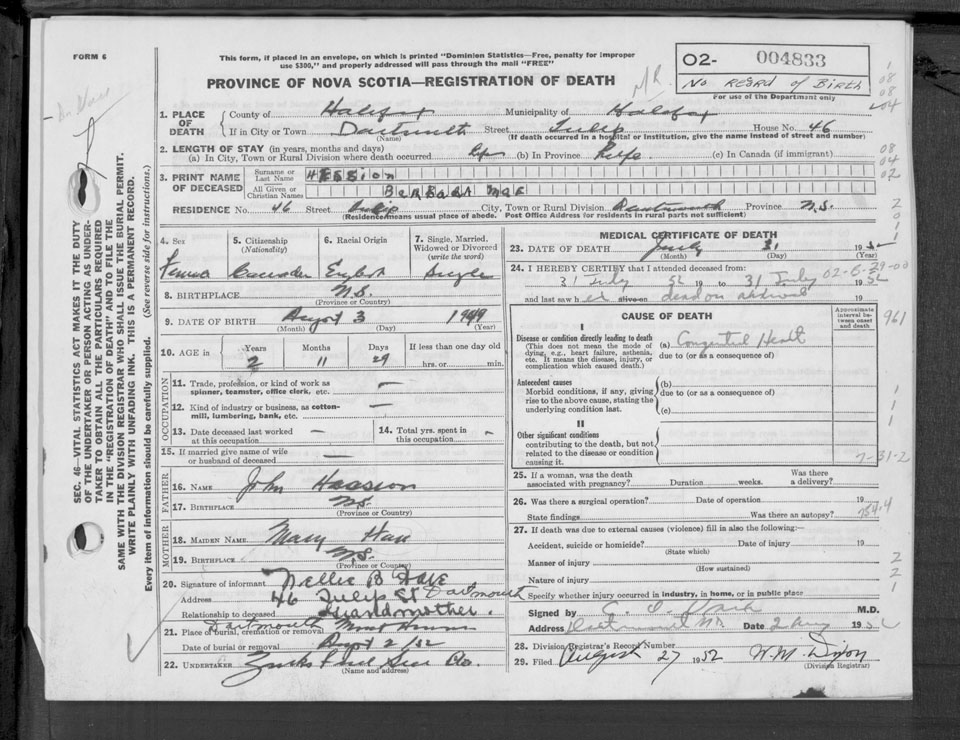 FORM 6
This form, if placed in an envelope, on which is printed "Dominion Statistics—Free, penalty for improper
use $300," and properly addressed will pass through the mail "FREE"
PROVINCE OF NOVA SCOTIA—REGISTRATION OF DEATH
02- 004833
No Record of Birth
For use of the Department only
1. PLACE OF DEATH
County of Halifax Municipality of Halifax
If in City or Town Dartmouth Street Tulip House No. 46
(Name) (If death occurred in a hospital or institution, give the name instead of street and number)
2. LENGTH OF STAY (in years, months and days)
(a) In City, Town or Rural Division where death occurred life (b) In Province Life (c) In Canada (if immigrant)
3. PRINT NAME OF DECEASED
Surname or Last Name HESSION
All Given or Christian Names BARBARA MAE
RESIDENCE No. 46 Street Tulip City, Town or Rural Division Dartmouth Province N.S.
(Residence means usual place of abode. Post Office Address for residents in rural parts not sufficient)
4. Sex Female
5. Citizenship (Nationality) Canadian
6. Racial Origin English
7. Single, Married, Widowed or Divorced (write the word) Single
8. BIRTHPLACE N.S.
(Province or Country)
9. DATE OF BIRTH August 3 1949
(Month) (Day) (Year)
10. AGE in Years 2 Months 11 Days 29 If less than one day old hrs. or min.
OCCUPATION
11. Trade, profession, or kind of work as spinner, teamster, office clerk, etc. —
12. Kind of industry or business, as cotton-mill, lumbering, bank, etc. —
13. Date deceased last worked at this occupation —
14. Total yrs. spent in this occupation -
15. If married give name of wife or husband of deceased —
FATHER
16. NAME John Hassion
17. BIRTHPLACE N.S.
(Province or Country)
MOTHER
18. MAIDEN NAME Mary
19. BIRTHPLACE N.S.
(Province or Country)
20. Signature of informant Nellie B
Address 46 Tulip St Dartmouth
Relationship to deceased Grandmother.
21. Place of burial, cremation or removal Dartmouth Mount Hermon
Date of burial or removal August 2/52
22. UNDERTAKER
(Name and address)
MEDICAL CERTIFICATE OF DEATH
23. DATE OF DEATH July 31 19
(Month) (Day) (Year)
24. I HEREBY CERTIFY that I attended deceased from:
31 July 52 19 to 31 July 1952
02-6-29-00
and last saw her alive on dead on arrival 19
CAUSE OF DEATH
Approximate interval between onset and death
961
I
Disease or condition directly leading to death
(This does not mean the mode of dying, e.g., heart failure, asthenia, etc. It means the disease, injury, or complication which caused death.)
(a) Congenital Heart
due to (or as a consequence of)
Antecedent causes
Morbid conditions, if any, giving rise to the above cause, stating the underlying condition last.
(b)
due to (or as a consequence of)
(c)
II
Other significant conditions
contributing to the death, but not related to the disease or condition causing it.
7-31-2
25. If a woman, was the death associated with pregnancy? Duration weeks. Was there a delivery?
26. Was there a surgical operation? Date of operation 19
State findings Was there an autopsy?
754.4
27. If death was due to external causes (violence) fill in also the following:—
Accident, suicide or homicide? Date of injury 19
(State which)
Manner of injury
(How sustained)
Nature of injury
Specify whether injury occurred in industry, in home, or in public place
Signed by M.D.
Address Dartmouth NS Date 2 Aug 1952
28. Division Registrar's Record Number
29. Filed August 27 1952 W.M. Dixon
(Division Registrar)
SEC. 46—VITAL STATISTICS ACT MAKES IT THE DUTY
OF THE UNDERTAKER OR PERSON ACTING AS UNDER-
TAKER TO OBTAIN ALL THE PARTICULARS REQUIRED
IN THE "REGISTRATION OF DEATH" AND TO FILE THE
SAME WITH THE DIVISION REGISTRAR WHO SHALL ISSUE THE BURIAL PERMIT.
WRITE PLAINLY WITH UNFADING INK. THIS IS A PERMANENT RECORD.
Every item of information should be carefully supplied. (See reverse side for instructions.)